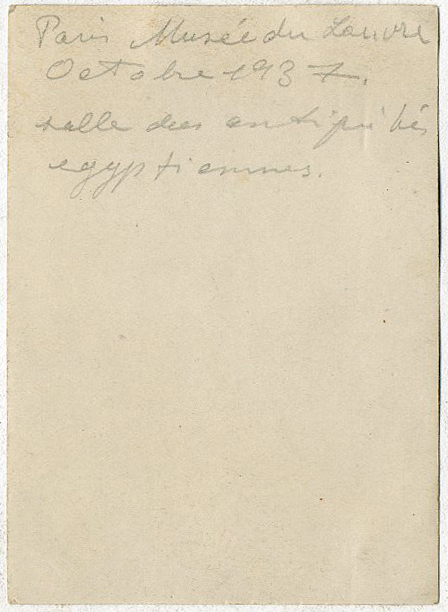 Paris Musée du Louvre
Octobre 1937.
salle des antiquités
egyptiennes.